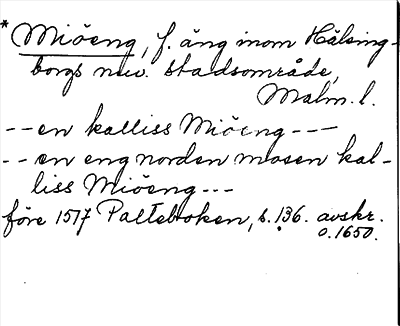 * Miöeng, f. äng inom Hälsing-
borgs nuv. stadsområde,
Malm. l.
-- en kalliss Miöeng ---
-- en eng norden mosen kal-
liss Miöeng ---
före 1517 Palteboken, s. 136. avskr.
o. 1650.